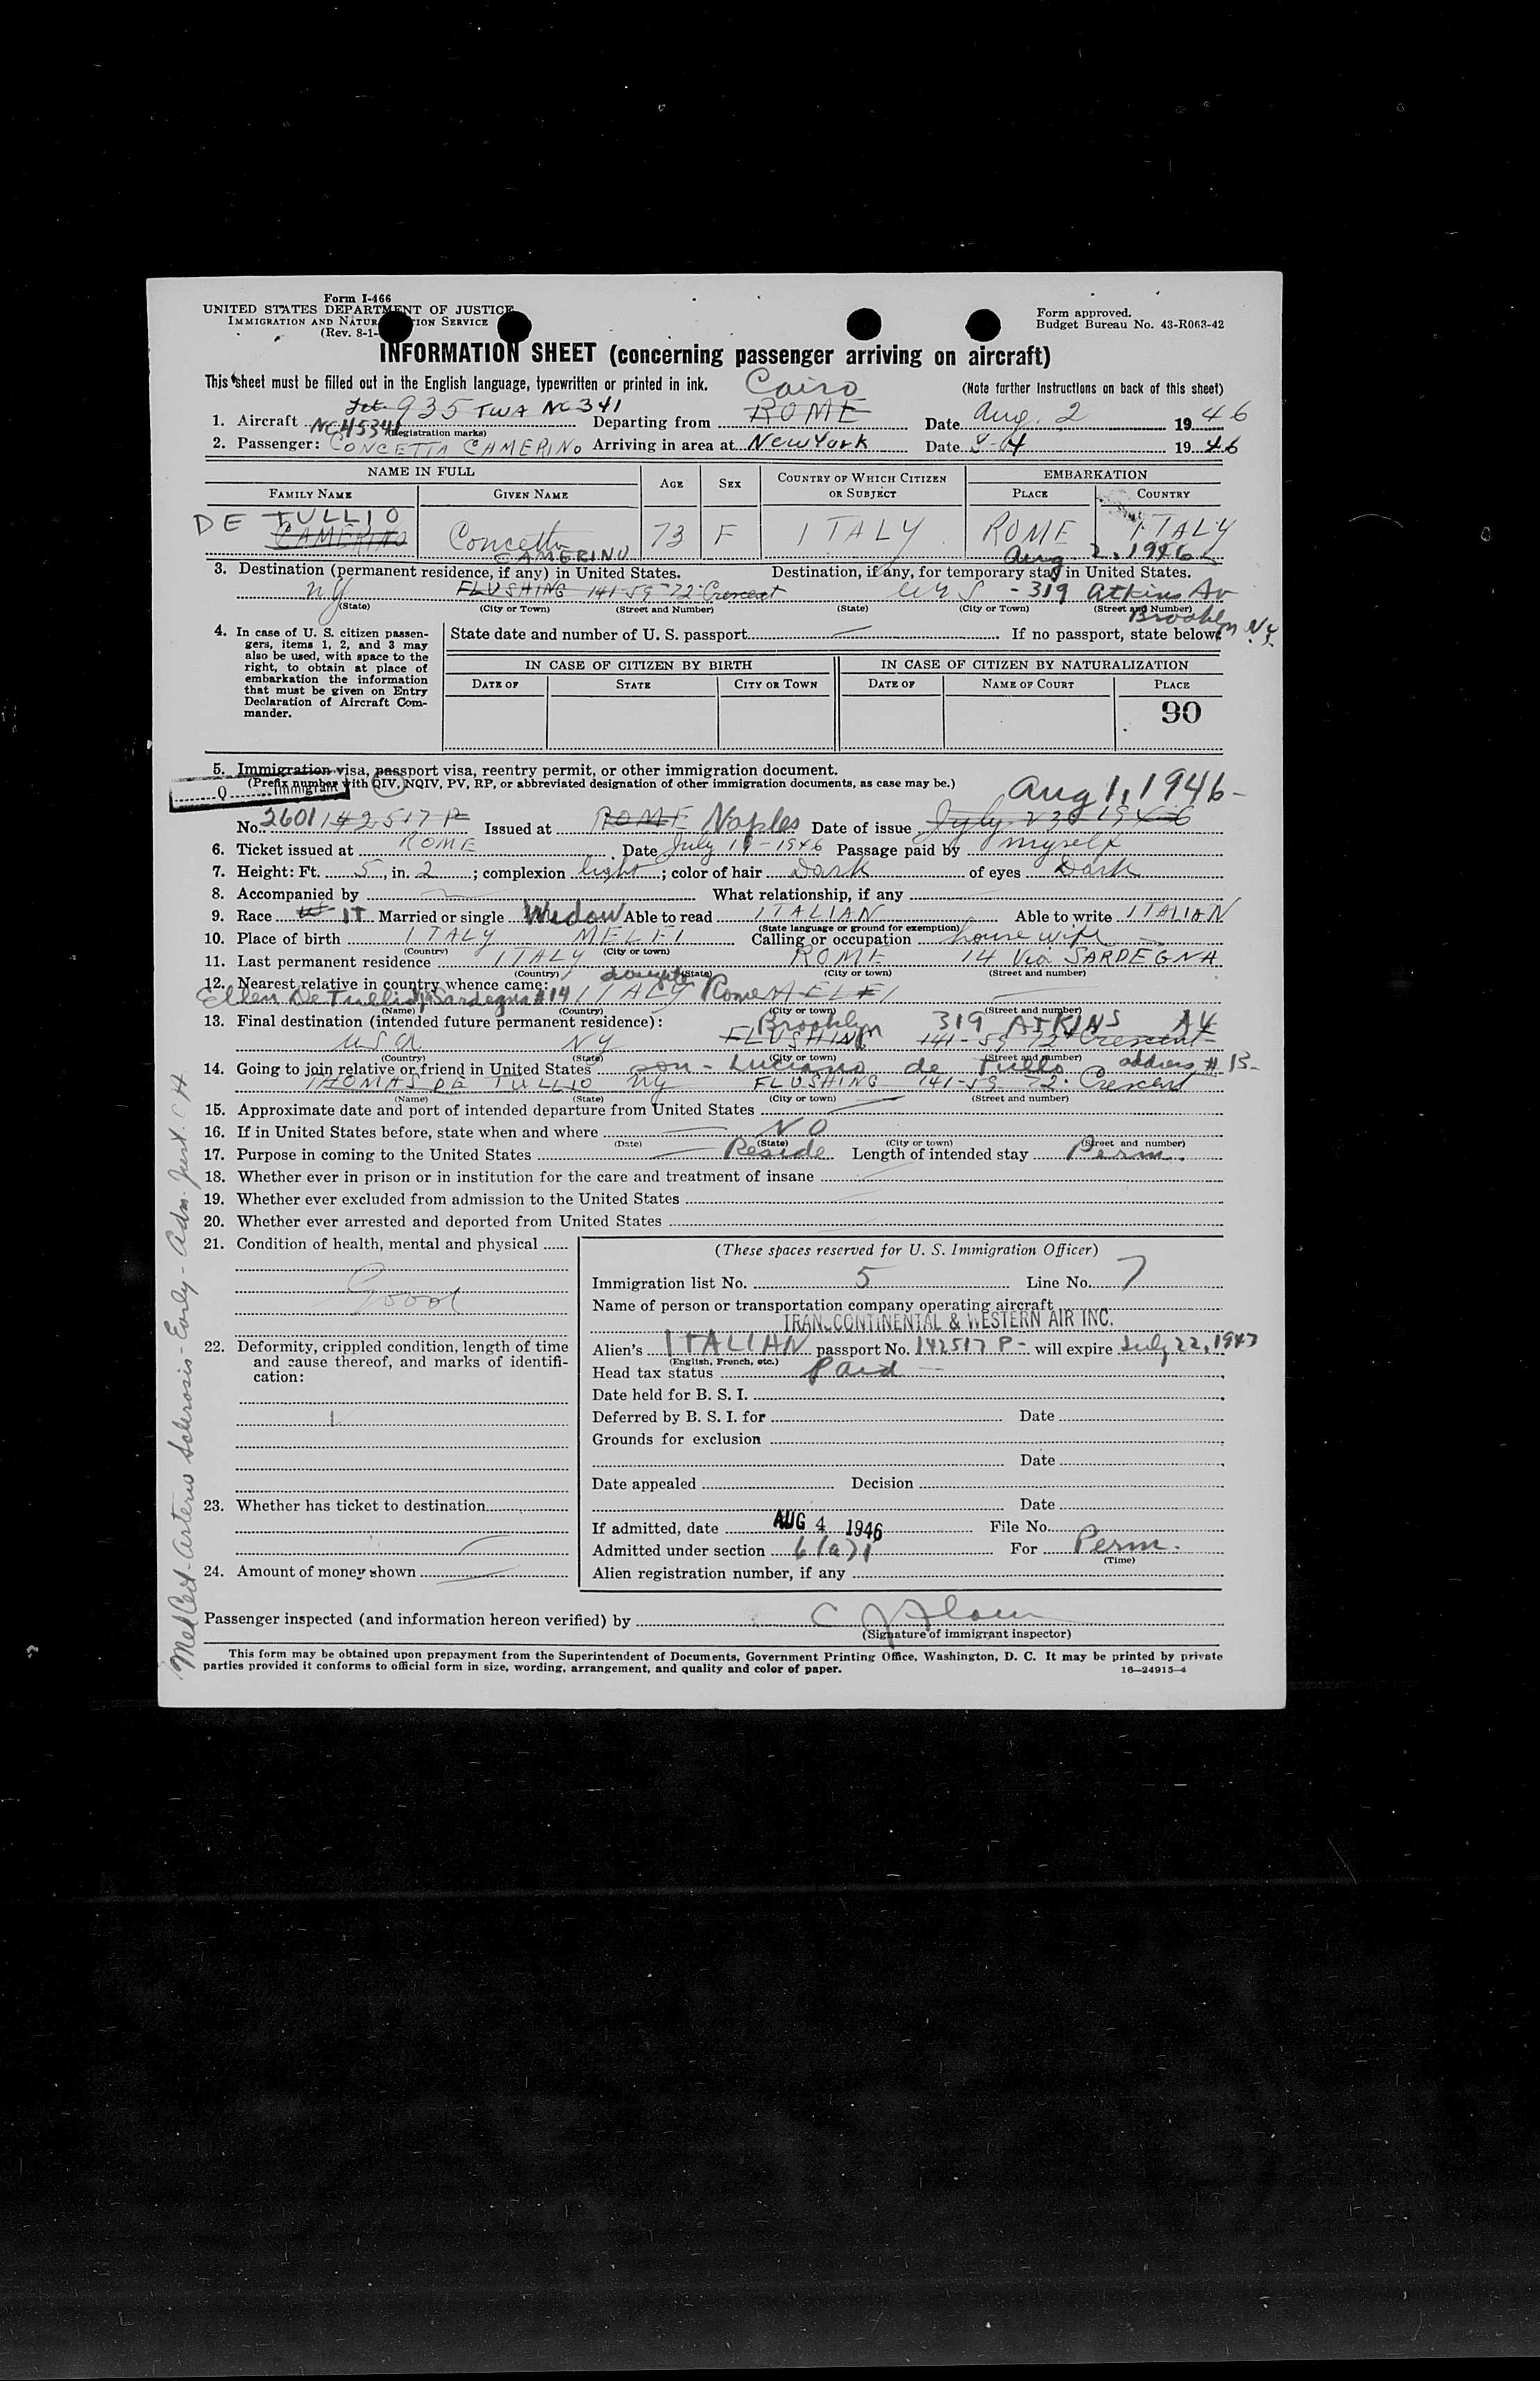 Form I-466
UNITED STATES DEPARTMENT OF JUSTICE
IMMIGRATION AND NATUR TION SERVICE
(Rev. 8-1-
Form approved.
Budget Bureau No. 43-R063-42
INFORMATION SHEET (concerning passenger arriving on aircraft)
This sheet must be filled out in the English language, typewritten or printed in ink. Cairo (Note further instructions on back of this sheet)
935 TWA NC341
1. Aircraft NC45341 Departing from ROME Date Aug. 2 1946
(Registration marks)
2. Passenger: CONCETTA CAMERINO Arriving in area at New York Date 8-4 1946
NAME IN FULL AGE SEX COUNTRY OF WHICH CITIZEN OR SUBJECT EMBARKATION
FAMILY NAME GIVEN NAME PLACE COUNTRY
DE TULLIO
CAMERINO Concetta 73 F ITALY ROME ITALY
CAMERINO Aug. 2, 1946
3. Destination (permanent residence, if any) in United States. Destination, if any, for temporary stay in United States.
NY FLUSHING 141-59 72 Crescent - 319 Atkins Av
(State) (City or Town) (Street and Number) (State) (City or Town) (Street and Number)
Brooklyn N.Y.
4. In case of U. S. citizen passengers, items 1, 2, and 3 may also be used, with space to the right, to obtain at place of embarkation the information that must be given on Entry Declaration of Aircraft Commander.
State date and number of U. S. passport If no passport, state below:
IN CASE OF CITIZEN BY BIRTH IN CASE OF CITIZEN BY NATURALIZATION
DATE OF STATE CITY OR TOWN DATE OF NAME OF COURT PLACE
90
5. Immigration visa, passport visa, reentry permit, or other immigration document.
(Prefix number with QIV, NQIV, PV, RP, or abbreviated designation of other immigration documents, as case may be.)
Q Immigrant
Aug 1, 1946-
No. 2601 142517 P Issued at ROME Naples Date of issue July 23 1946
6. Ticket issued at ROME Date July 19-1946 Passage paid by myself
7. Height: Ft. 5, in. 2; complexion light; color of hair Dark of eyes Dark
8. Accompanied by What relationship, if any
9. Race IT Married or single Widow Able to read ITALIAN Able to write ITALIAN
(State language or ground for exemption)
10. Place of birth ITALY MELFI Calling or occupation house wife
(Country) (City or town)
11. Last permanent residence ITALY ROME 14 Via SARDEGNA
(Country) (State) (City or town) (Street and number)
12. Nearest relative in country whence came: daughter
Ellen De Tullio Via Sardegna #14 ITALY Rome MELFI
(Name) (Country) (City or town) (Street and number)
13. Final destination (intended future permanent residence): Brooklyn 319 ATKINS AV
USA NY FLUSHING 141-59 72 Crescent
(Country) (State) (City or town) (Street and number)
14. Going to join relative or friend in United States son - Luciano de Tullo address # 13-
THOMAS DE TULLIO NY FLUSHING 141-59 72 Crescent
(Name) (State) (City or town) (Street and number)
15. Approximate date and port of intended departure from United States
16. If in United States before, state when and where NO
(Date) (State) (City or town) (Street and number)
17. Purpose in coming to the United States Reside Length of intended stay Perm.
18. Whether ever in prison or in institution for the care and treatment of insane
19. Whether ever excluded from admission to the United States
20. Whether ever arrested and deported from United States
21. Condition of health, mental and physical
Good
22. Deformity, crippled condition, length of time and cause thereof, and marks of identification:
23. Whether has ticket to destination
24. Amount of money shown
(These spaces reserved for U. S. Immigration Officer)
Immigration list No. 5 Line No. 7
Name of person or transportation company operating aircraft
TRANSCONTINENTAL & WESTERN AIR INC.
Alien's ITALIAN passport No. 142517 P- will expire July 22, 1947
(English, French, etc.)
Head tax status Paid
Date held for B. S. I.
Deferred by B. S. I. for Date
Grounds for exclusion
Date
Date appealed Decision
Date
If admitted, date AUG 4 1946 File No.
Admitted under section 6(a)1 For Perm.
(Time)
Alien registration number, if any
Passenger inspected (and information hereon verified) by
(Signature of immigrant inspector)
This form may be obtained upon prepayment from the Superintendent of Documents, Government Printing Office, Washington, D. C. It may be printed by private
parties provided it conforms to official form in size, wording, arrangement, and quality and color of paper. 16—24915-4
Med Cert - Arterio Sclerosis - Early - Adm.